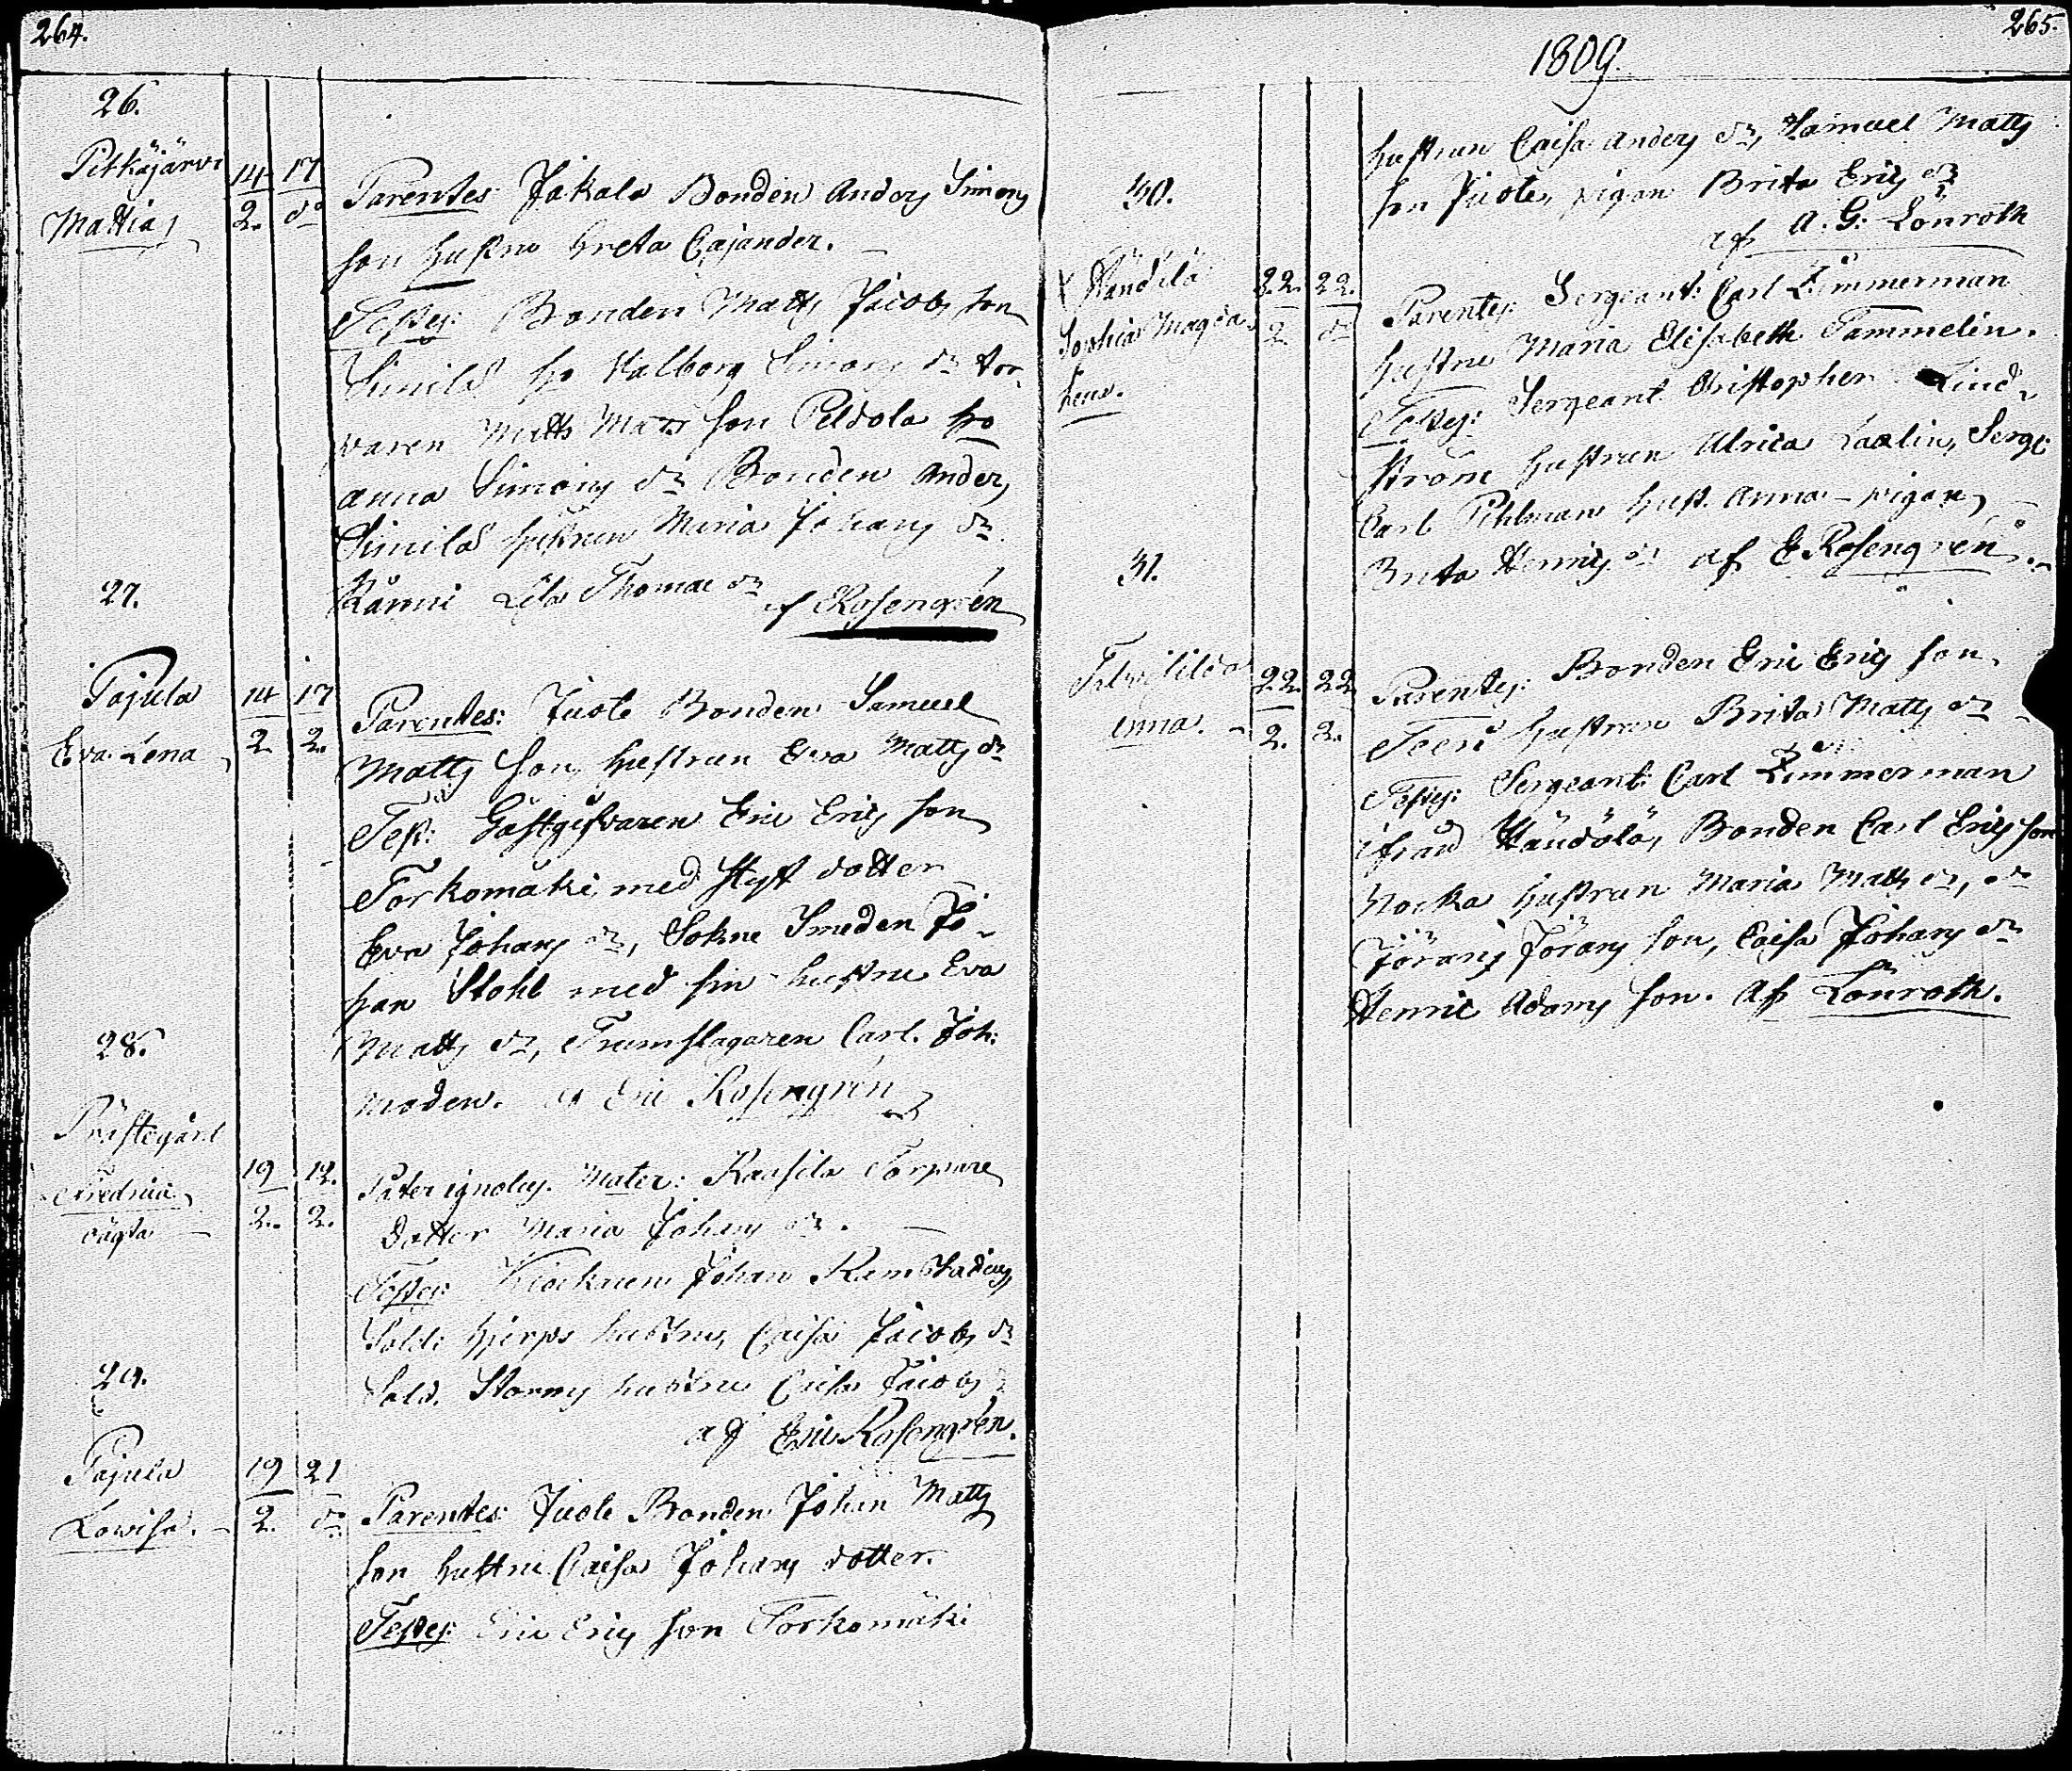 264.
26.
Pitkäjärvi
Mattias
14 17
2. do
Parentes: Jakala Bonden Anders Simons
son hustru Greta Cajander.
Testes: Bonden Matts Jacobs son
Simila ho Valborg Simons dr tor-
varen Matts Matts son Peldola ho
Anna Simons dr Bonden Anders
Simila hustrun Maria Johans dr
Kånni Lisa Thomae dr af Rosengrén
27.
Pajula
Eva Lena
14 17
2 2.
Parentes: Juote Bonden Samuel
Matts son, hustrun Eva Matts dr
Test: Gästgifvaren Eric Erics son
Torkomäki med styf dotter
Eva Johans dr, Sokne Smeden Jo-
han Stohl med sin hustru Eva
Matts dr, Trumslagaren Carl Joh:
Moden. af Eric Rosengrén
28.
Prästegård
Fredrica
19 12.
2. 2.
Pater ignotus. Mater: Kassila Torpare
dotter Maria Johans dr.
Testes: Klockaren Johan Ramstadius,
Sold: Hjerps hustru, Caisa Jacobs dr
Sold. Storms hustru Caisa Jacobs dr
af Eric Rosengrén.
29.
Pajula
Lovisa.
19 21
2. do
Parentes: Juote Bonden Johan Matts
son hustru Caisa Johans dotter.
Testes: Eric Erics son Torkomäki
265.
1809.
hustrun Caisa Anders dr, Samuel Matts
son Juote, pigan Brita Erics dr
af A. G. Lönroth
30.
Händilä
Sophia Magda-
lena.
22. 22.
2 do
Parentes: Sergeant: Carl Zimmerman
hustru Maria Elisabeth Tammelin.
Testes: Sergeant Christopher Lind-
ström hustrun Ulrica Laxlin, Serge:
Carl Pihlman hust. Anna - pigan,
Brita Henrics dr af E Rosengrén.
31.
Anna.
22. 22
2. 2.
Parentes: Bonden Eric Erics son
Teeri hustrun Brita Matts dr
Testes: Sergeant: Carl Zimmerman
ifrån Händölä, Bonden Carl Erics son
Nocka hustrun Maria Matts dr, dr
Jörans Jörans son, Caisa Johans dr
Henric Adams son. Af Lönroth.